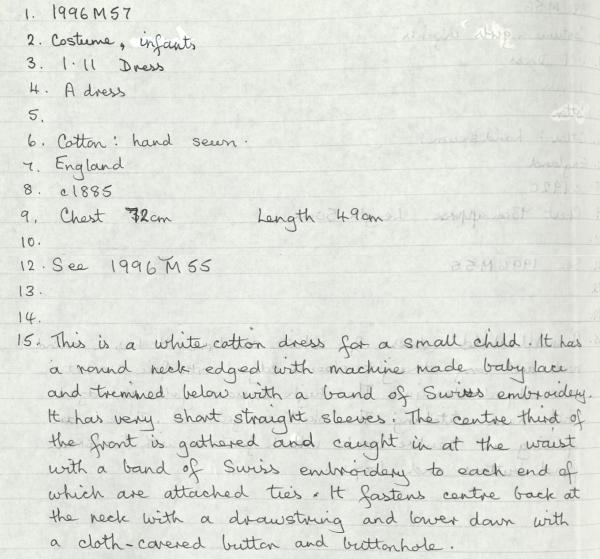 1. 1996M57
2. Costume, infants
3. 1.11 Dress
4. A dress
5.
6. Cotton: hand sewn.
7. England
8. c1885
9. Chest 72cm Length 49cm
10.
12. See 1996M55
13.
14.
15. This is a white cotton dress for a small child. It has
a round neck edged with machine made baby lace
and trimmed below with a band of Swiss embroidery.
It has very short straight sleeves. The centre third of
the front is gathered and caught in at the waist
with a band of Swiss embroidery to each end of
which are attached ties. It fastens centre back at
the neck with a drawstring and lower down with
a cloth-covered button and buttonhole.